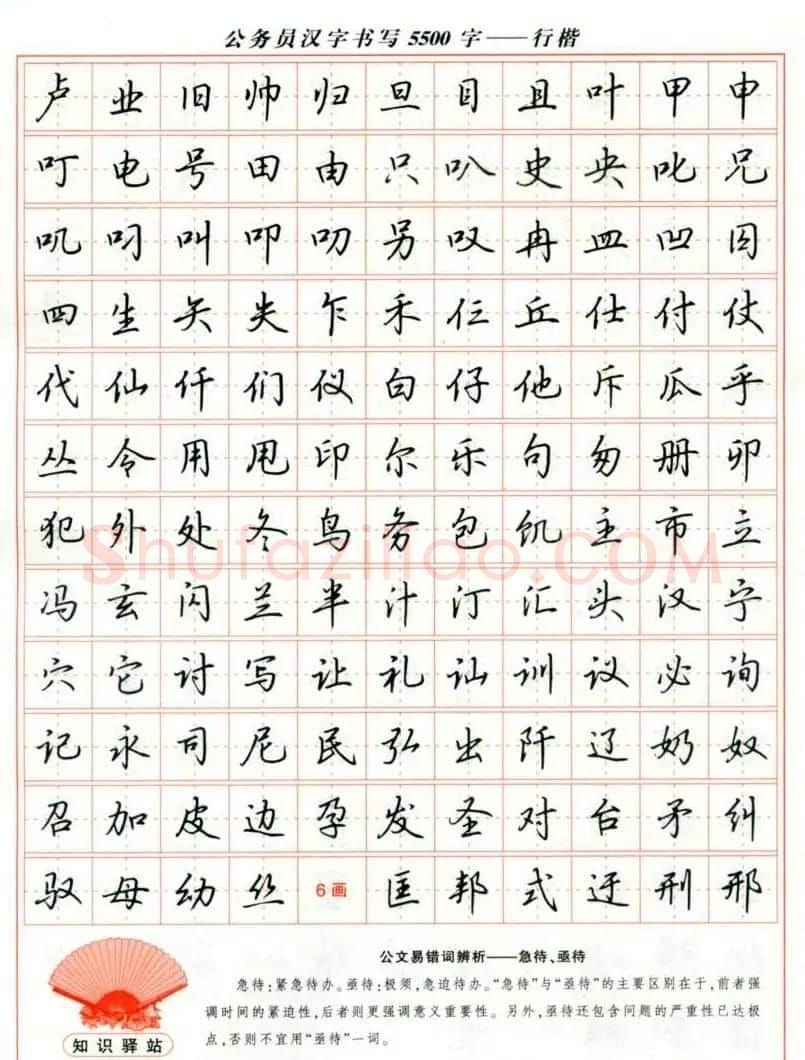 公务员汉字书写5500字——行楷
卢业旧帅归旦目且叶甲申
叮电号田由只叭史央叱兄
叽叼叫叩叨另叹冉皿凹囚
四生矢失乍禾仨丘仕付仗
代仙仟们仪白仔他斥瓜乎
丛令用甩印尔乐句匆册卯
犯外处冬鸟务包饥主市立
冯玄闪兰半汁汀汇头汉宁
穴它讨写让礼讪训议必询
记永司尼民弘出阡辽奶奴
召加皮边孕发圣对台矛纠
驭母幼丝 6画 匡邦式迂刑邢
shufaziliao.COM
公文易错词辨析——急待、亟待
急待:紧急待办。亟待:极须,急迫待办。“急待”与“亟待”的主要区别在于,前者强
调时间的紧迫性,后者则更强调意义重要性。另外,亟待还包含问题的严重性已达极
点,否则不宜用“亟待”一词。
知识驿站